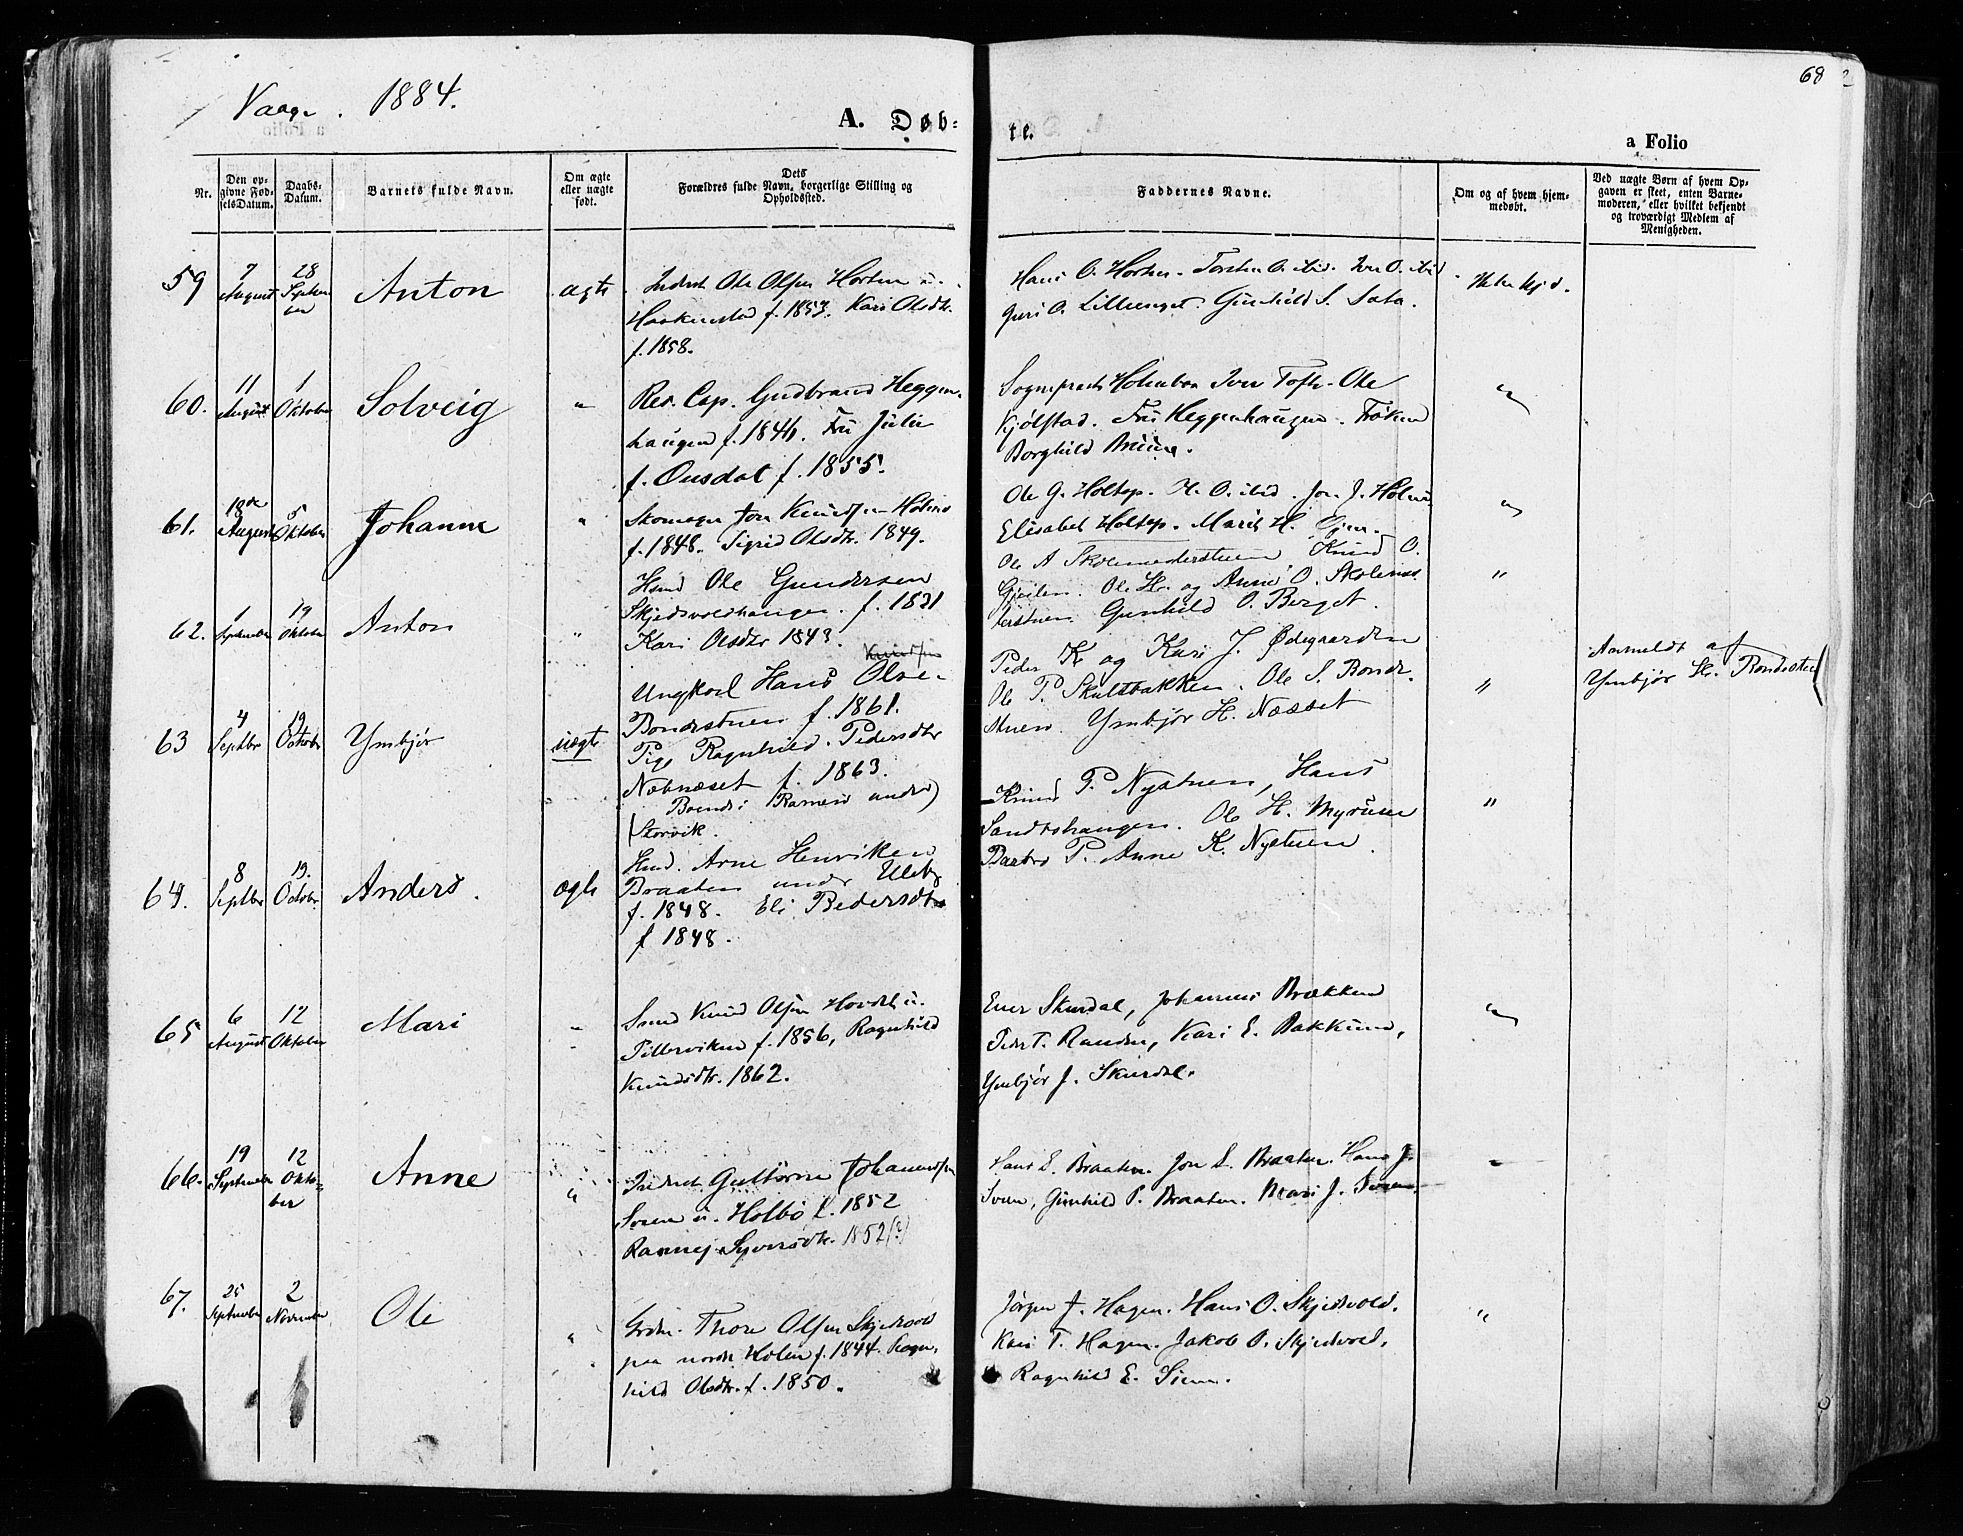 68
Vaage. 1884.
A. Døb=
te.
a Folio
Nr.
Den op-
givne Fød-
selsDatum.
Daabs-
Datum.
Barnets fulde Navn.
Om ægte
eller uægte
født.
Dets
Forældres fulde Navn, borgerlige Stilling og
Opholdssted.
Faddernes Navne.
Om og af hvem hjem-
medøbt.
Ved uægte Børn af hvem Op-
gaven er skeet, enten Barne-
moderen, eller hvilket bekjendt
og troværdigt Medlem af
Menigheden.
59 7 August 28 Septem
ber
Anton
ægte
Inderst Ole Olsen Horten u.
Haakenstad f. 1853. Kari Olsdtr.
f. 1858.
Hans O. Horten. Torsten O. ibid. Iver O. ibid
Guri O. Lillienget. Gunhild S. Sata.
Ikke hjd.
60. 11 August 1 Oktober
Solveig
"
Res. Cap. Gudbrand Heggen-
haugen f. 1846. Fru Julie
f. Onsdal f. 1855.
Sogneprest Holmboe Iver Tofte. Ole
Kjølstad. Fru Heggenhaugen. Frøken
Borghild Bruun.
"
61. 18de August 5 Oktober
Johanne
"
Skomager Jon Knudsen Holen
f. 1848. Sigrid Olsdtr. 1849.
Ole G. Holtep. H. O. ibid. Jon J. Holen
Elisabet Holtep. Marit H.
"
62. 1 September 19 Oktober
Anton
"
Hmd Ole Gundersen
Skjedsvoldhaugen. f. 1831
Kari Olsdtr 1843.
Ole A Skolemesterstuen Knud O.
Gjeilen. Ole H. og Anne O. Skolemes
terstuen. Gunhild O. Berget.
"
63 4 Septbr 19 Octobr
Ymbjør
uægte
Knudsen
Ungkarl Hans Olsen
Bondestuen f. 1861.
Pige Ragnhild Pedersdtr
Nebnæset f. 1863.
Boende i under)
Storvik.
Peder K og Kari J. Ødegaarden
Ole P. Skultbakken. Ole S. Bonde-
stuen. Ymbjør H. Næset
"
Anmeldt af
Ymbjør H. Bondestuen
64. 8 Septbr 19. Octobr.
Anders.
ægte
Hmd. Arne Henriksen
Braaten under Ulsby
f. 1848. Eli Pedersdtr
f 1848.
Knud P. Nystuen, Hans
Sandbohaugen. Ole H. Myruen
Barbro P. Anne K. Nystuen.
"
65 6 August 12 Oktober
Mari
"
Smed Knud Olsen Hovde u.
Tillerviken f. 1856, Ragnhild
Knudsdtr. 1862.
Einer Skurdal, Johannes Brækken
Peder T. Randen, Kari E. Bakkum,
Ymbjør J. Skurdal.
"
66. 19 September 12 Okto-
ber
Anne
"
Inderst Guttorm Johannesen
Sveen u. Holbø f. 1852
Rannej Syversdtr. 1852(?)
Hans S. Braaten. Jon S. Braaten. Hans J.
Sveen, Gunhild P. Braaten. Mari J. Sveen.
"
67. 25 September 2 November
Ole
"
Grdbr. Thore Olsen Skjedsvold
paa nordre Holen f. 1844. Ragn-
hild Olsdtr. f. 1850.
Jørgen J. Hagen. Hans O. Skjedsvold.
Kari T. Hagen. Jakob O. Skjedsvold.
Ragnhild E. Sveen.
"